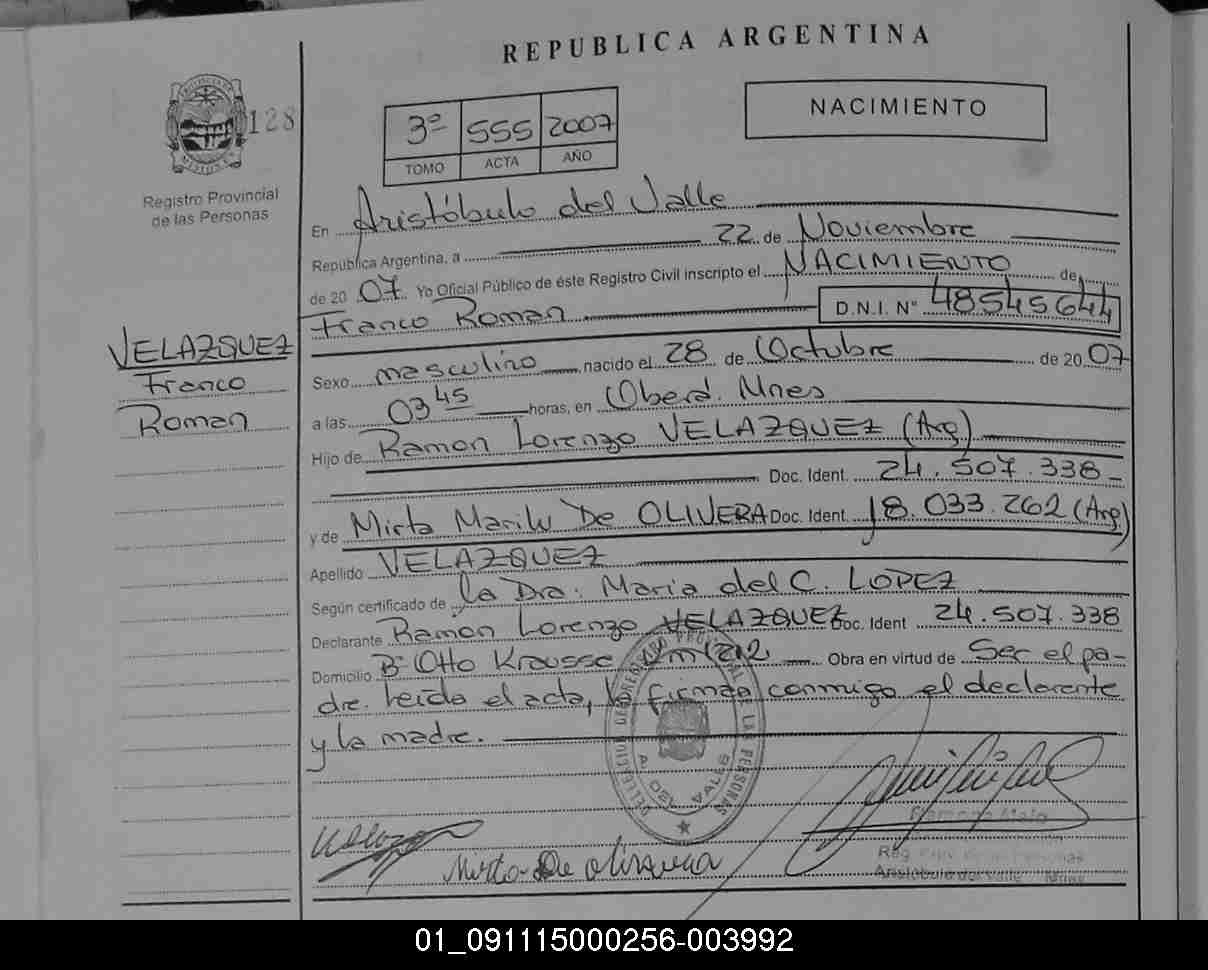 REPUBLICA ARGENTINA
128
Registro Provincial
de las Personas
3º 555 2007
TOMO ACTA AÑO
NACIMIENTO
En Aristóbulo del Valle
República Argentina, a 22 de Noviembre
de 20 07 Yo Oficial Público de éste Registro Civil inscripto el NACIMIENTO de
Franco Roman D.N.I. Nº 48545644
VELAZQUEZ
Franco
Roman
Sexo masculino nacido el 28 de Octubre de 20 07
a las 03 45 horas, en Oberá. Mnes
Hijo de Ramon Lorenzo VELAZQUEZ (Arg)
Doc. Ident. 24.507.338
y de Mirta Marilu De OLIVERA Doc. Ident. 18.033.262 (Arg.)
Apellido VELAZQUEZ
Según certificado de la Dra. Maria del C. LOPEZ
Declarante Ramon Lorenzo VELAZQUEZ Doc. Ident 24.507.338
Domicilio Bº Otto Krausse Km 1212 Obra en virtud de Ser el pa-
dre. Leida el acta, firman conmigo el declarante
y la madre.
Mirta De Oliveira
Aristóbulo del Valle
01_091115000256-003992